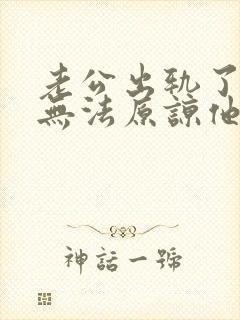 老公出軌了
無法原諒他
神話一號